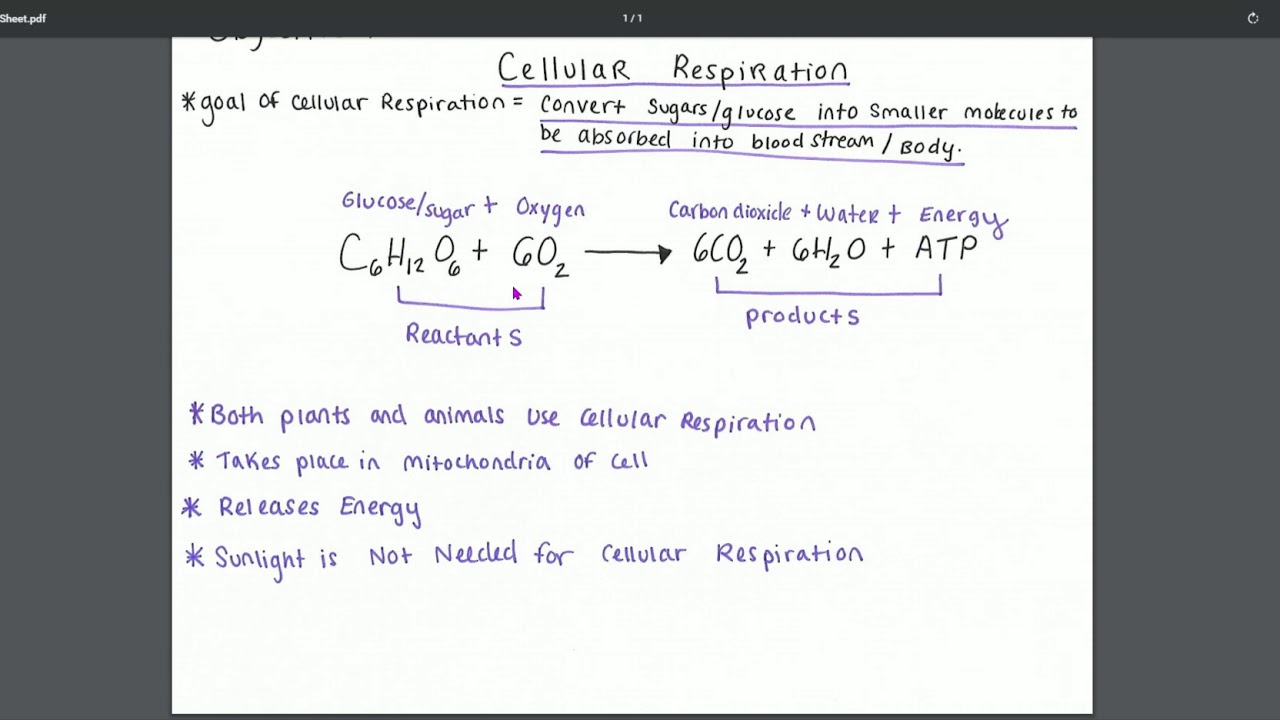 Sheet.pdf
1 / 1
Cellular Respiration
*goal of cellular Respiration = Convert Sugars/glucose into smaller molecules to
be absorbed into blood stream / Body.
Glucose/sugar + Oxygen Carbon dioxide + Water + Energy
C₆H₁₂O₆ + 6O₂ → 6CO₂ + 6H₂O + ATP
Reactants products
*Both plants and animals use cellular Respiration
* Takes place in mitochondria of cell
* Releases Energy
* Sunlight is Not Needed for Cellular Respiration